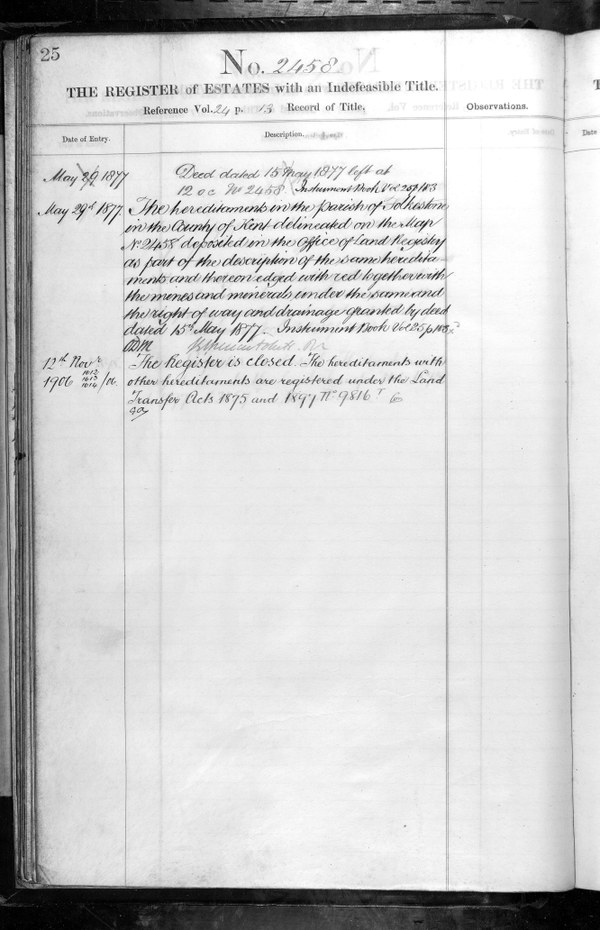 25
No. 2458
THE REGISTER of ESTATES with an Indefeasible Title.
Reference Vol. 24 p. 13 Record of Title.
Observations.
Date of Entry.
Description.
May 29 1877
Deed dated 15 May 1877 left at
12 o c No 2458 Instrument Book Vol 25 p 103
May 29th 1877.
The hereditaments in the Parish of Folkestone
in the County of Kent delineated on the Map
No 2458 deposited in the Office of Land Registry
as part of the description of the same heredita-
ments and thereon edged with red together with
the mines and minerals under the same and
the right of way and drainage granted by deed
dated 15th May 1877. Instrument Book Vol 25 p 103
12th Novr
1906
The Register is closed. The hereditaments with
other hereditaments are registered under the Land
Transfer Acts 1875 and 1897 No 9816